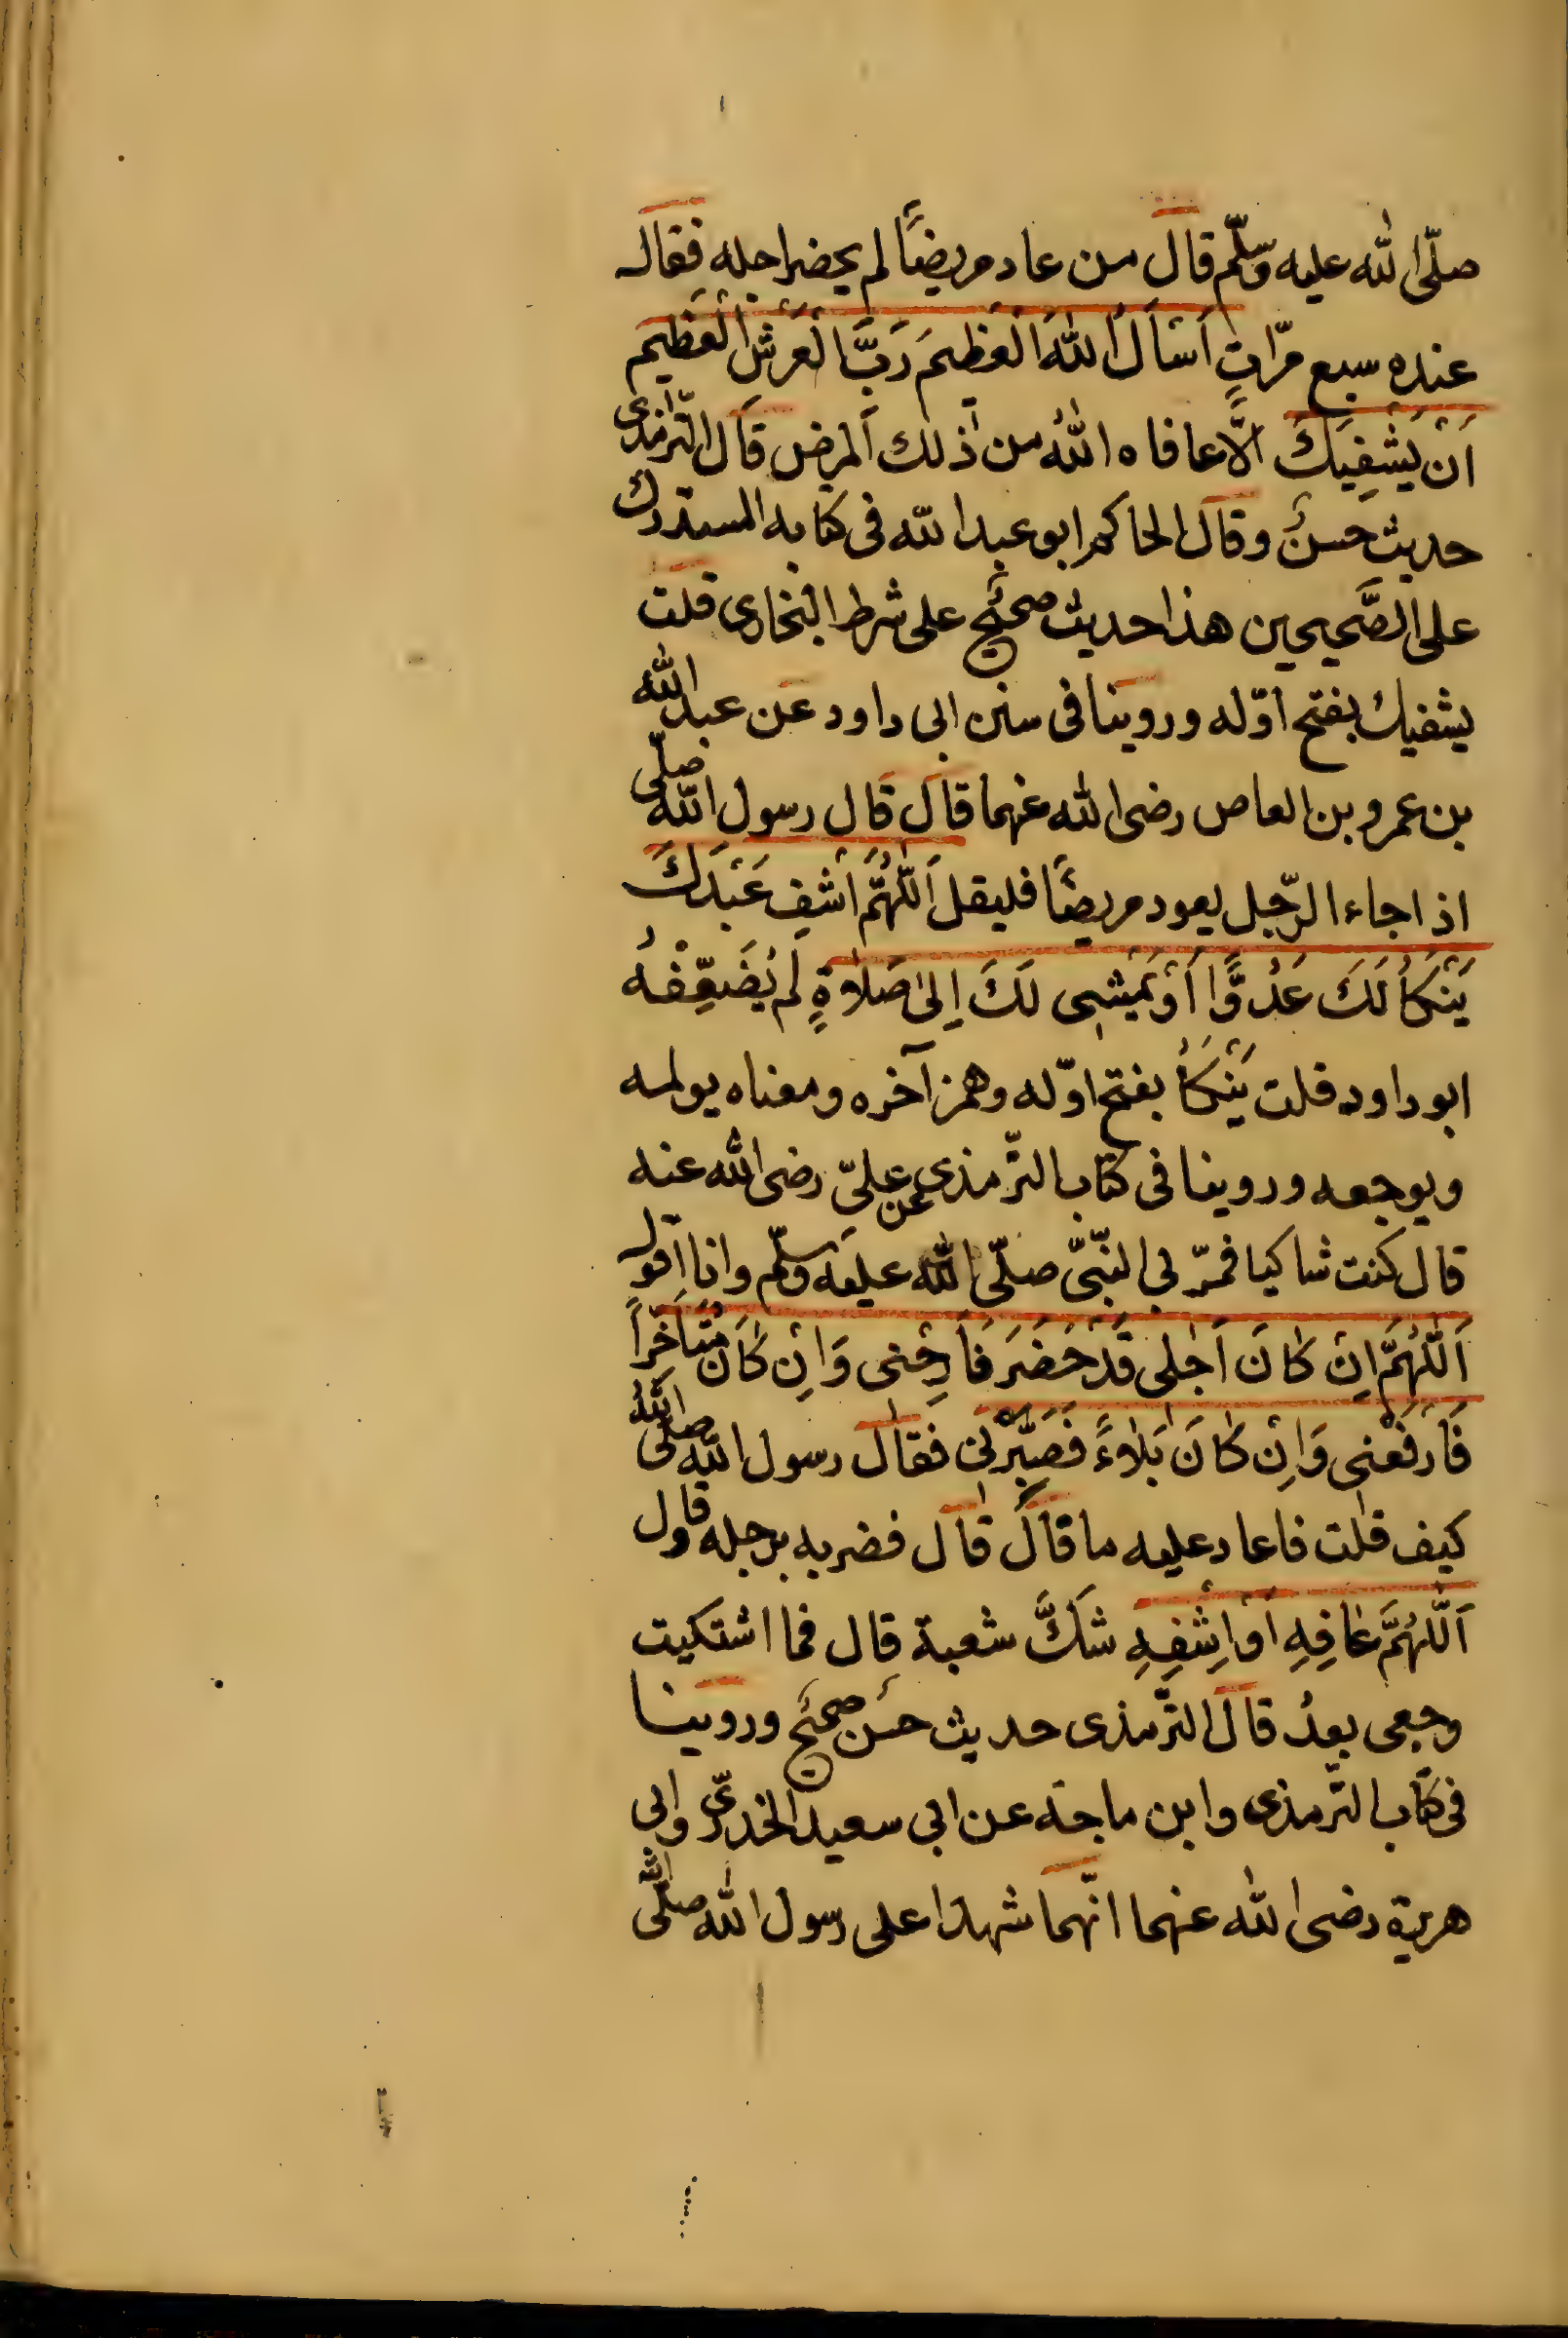 صلّى الله عليه وسلّم قال من عاد مريضًا لم يحضر اجله فقال
عنده سبع مرّاتٍ اَسْاَلُ اللهَ الْعَظيمَ رَبَّ الْعَرْشِ الْعَظيمِ
اَنْ يَشْفِيَكَ الّا عافاه اللهُ من ذلك المرض قال الترمذى
حديث حسنٌ وقال الحاكم ابو عبد الله فى كتابه المستدرك
على الصَّحيحين هذا حديث صحيحٌ على شرط البخارى قلت
يشفيك بفتح اوّله وروينا فى سنن ابى داود عن عبد الله
بن عمرو بن العاص رضى الله عنهما قال قال رسول الله صلّى
اذا جاء الرّجل يعود مريضًا فليقل اَللّهُمَّ اشْفِ عَبْدَكَ
يَنْكَأُ لَكَ عَدُوًّا اَوْ يَمْشِى لَكَ اِلىٰ صَلاٰةٍ لم يُضَعِّفْهُ
ابو داود قلت يَنْكَأُ بفتح اوّله وهمز آخره ومعناه يولمه
ويوجعه وروينا فى كتاب الترّمذى عن علىّ رضى الله عنه
قال كنت شاكيا فمرّ بى النّبىّ صلّى الله عليه وسلّم وانا اقول
اَللّهُمَّ اِنْ كٰانَ اَجَلى قَدْ حَضَرَ فَاَرِحْنى وَاِنْ كٰانَ مُتَاَخِّرًا
فَارْفَعْنى وَاِنْ كٰانَ بَلٰاءً فَصَبِّرْنى فقال رسول الله صلّى الله
كيف قلت فاعاد عليه ما قال قال فضربه برجله وقال
اَللّهُمَّ عٰافِهِ اَوْ اِشْفِهِ شَكَّ شعبة قال فما اشتكيت
وجعى بعدُ قال الترّمذى حديث حسن صحيحٌ وروينا
فى كتاب الترّمذى وابن ماجة عن ابى سعيد الخدرىّ وابى
هريرة رضى الله عنهما انّهما شهدا على رسول الله صلّى الله